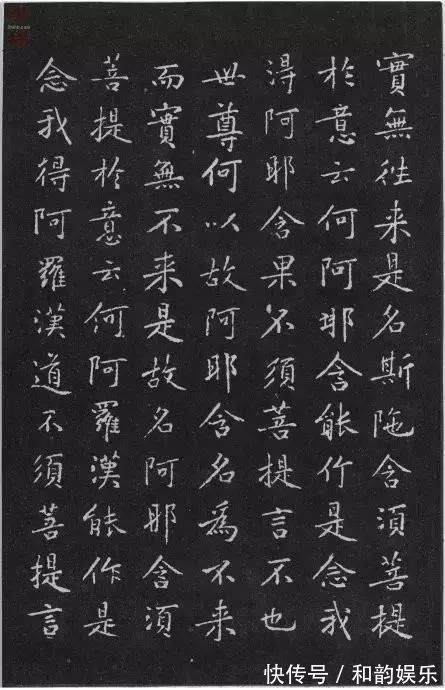 實無往来是名斯陁含須菩提
於意云何阿耶含能作是念我
得阿耶含果不須菩提言不也
世尊何以故阿耶含名為不来
而實無不来是故名阿耶含須
菩提於意云何阿羅漢能作是
念我得阿羅漢道不須菩提言
快传号 / 和韵娱乐